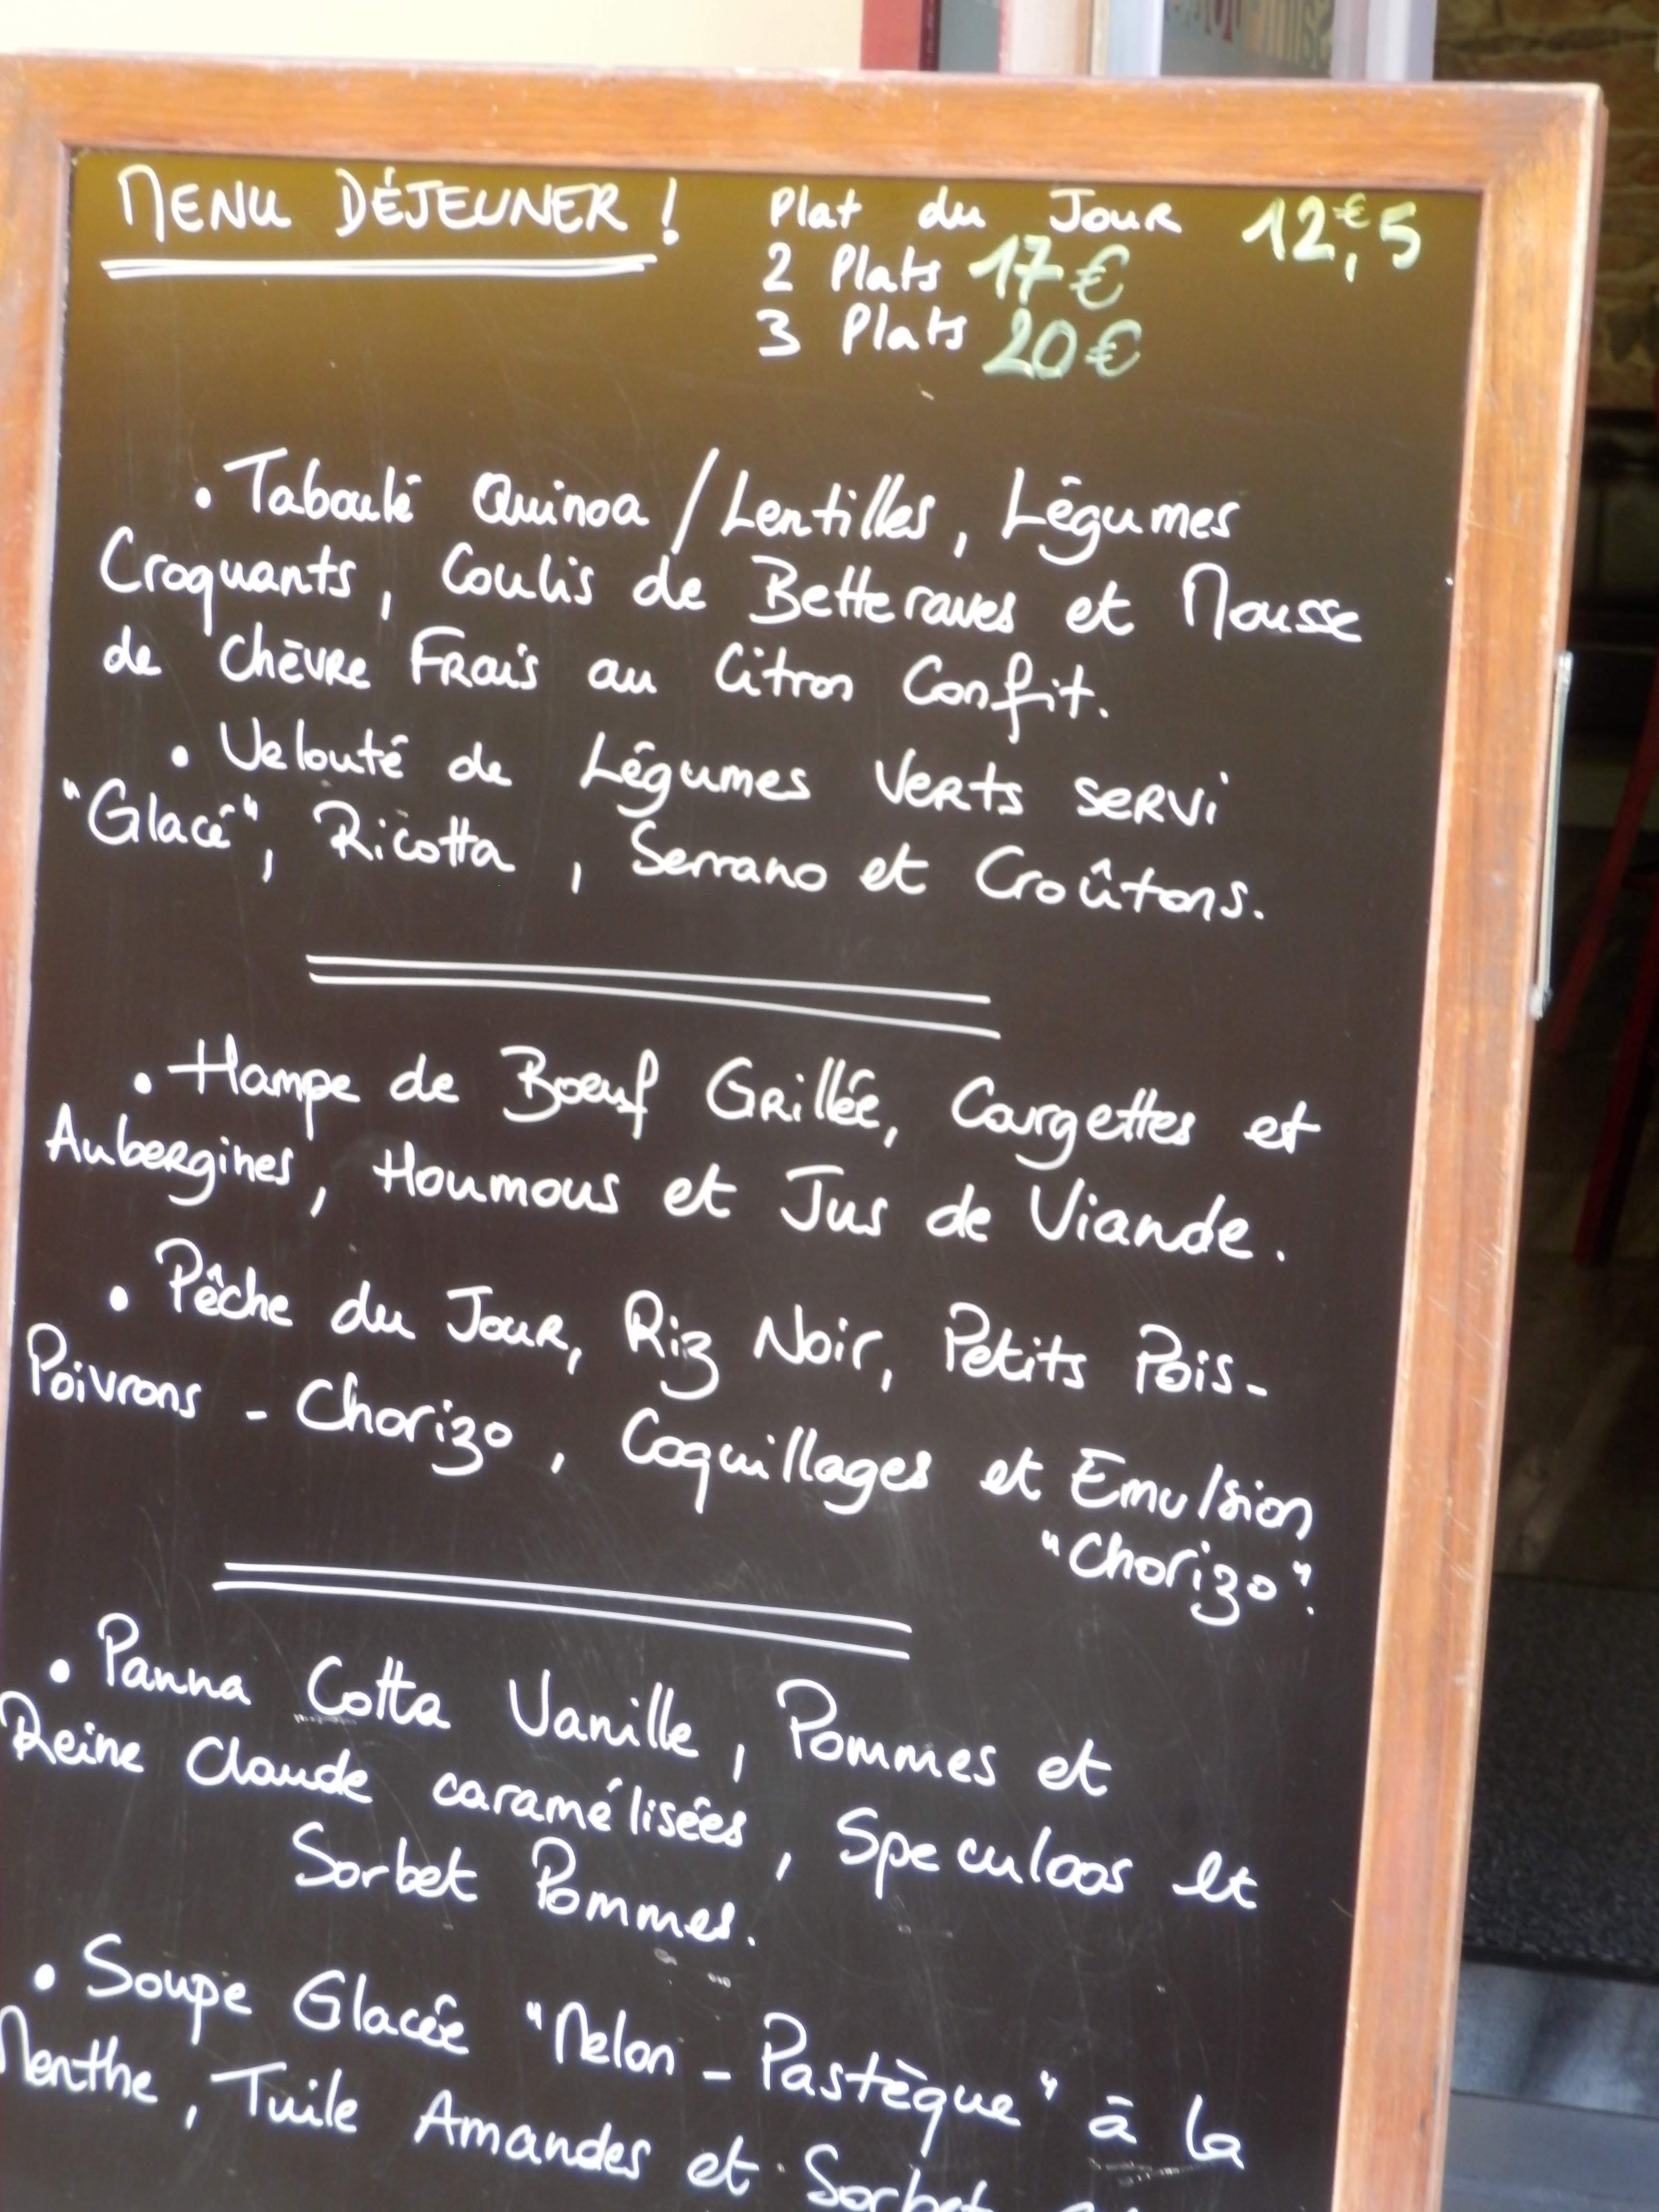 MENU DÉJEUNER !
Plat du Jour 12,€5
2 Plats 17€
3 Plats 20€
• Taboulé Quinoa / Lentilles, Légumes
Croquants, Coulis de Betteraves et Mousse
de Chèvre Frais au Citron Confit.
• Velouté de Légumes Verts servi
"Glacé", Ricotta, Serrano et Croûtons.
• Hampe de Boeuf Grillée, Courgettes et
Aubergines, Houmous et Jus de Viande.
• Pêche du Jour, Riz Noir, Petits Pois-
Poivrons - Chorizo, Coquillages et Emulsion
"Chorizo".
• Panna Cotta Vanille, Pommes et
Reine Claude caramélisées, Speculoos et
Sorbet Pommes.
• Soupe Glacée "Melon - Pastèque" à la
Menthe, Tuile Amandes et Sorbet